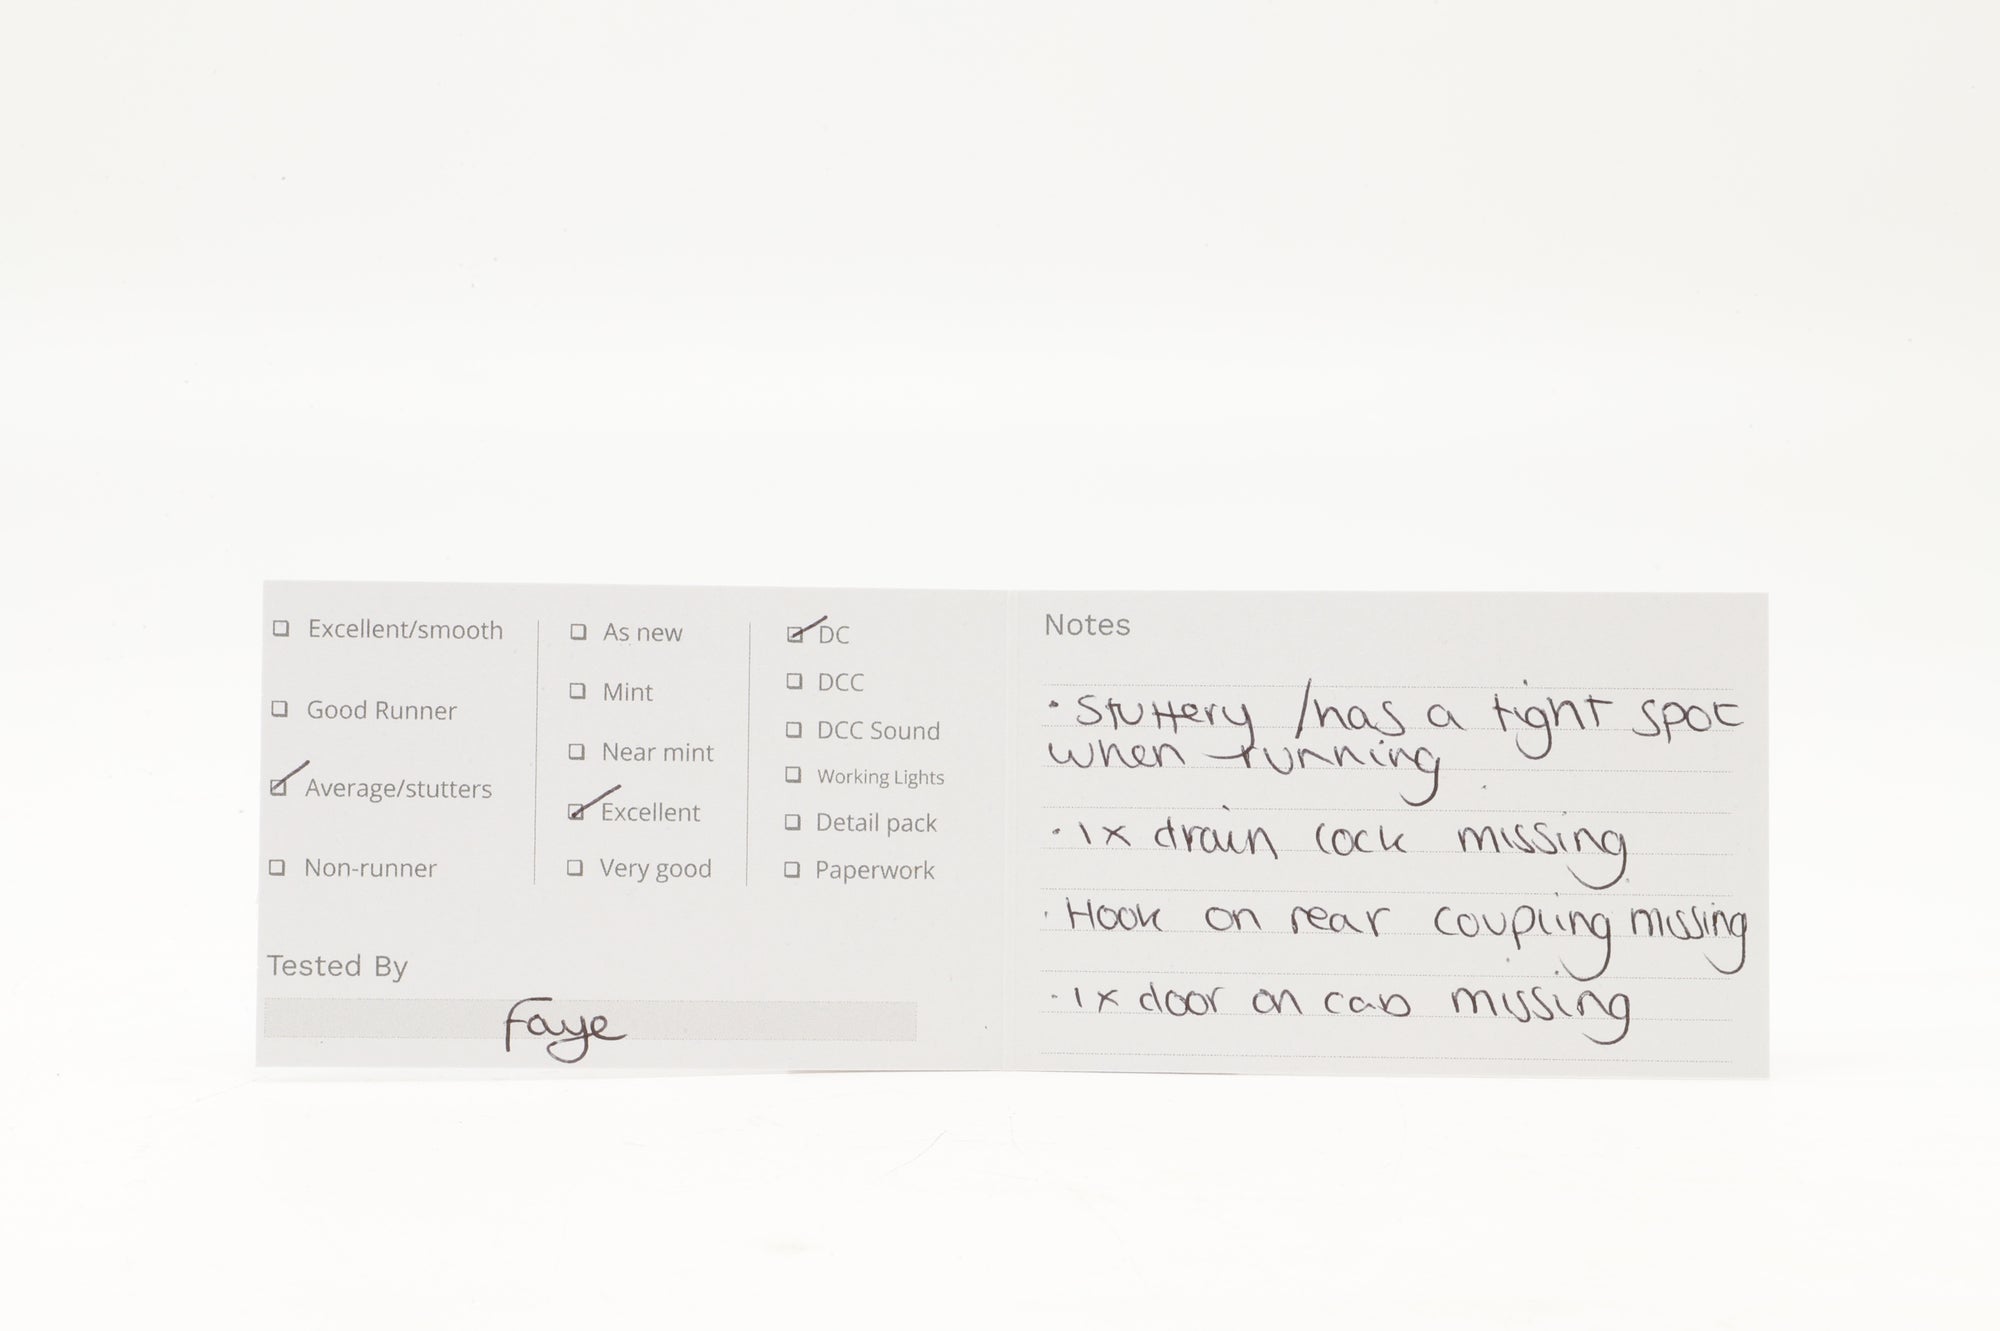 Excellent/smooth
Good Runner
Average/stutters
Non-runner
As new
Mint
Near mint
Excellent
Very good
DC
DCC
DCC Sound
Working Lights
Detail pack
Paperwork
Tested By
Faye
Notes
· Stuttery /has a tight spot
when running
· 1x drain cock missing
· Hook on rear coupling missing
· 1x door on cab missing